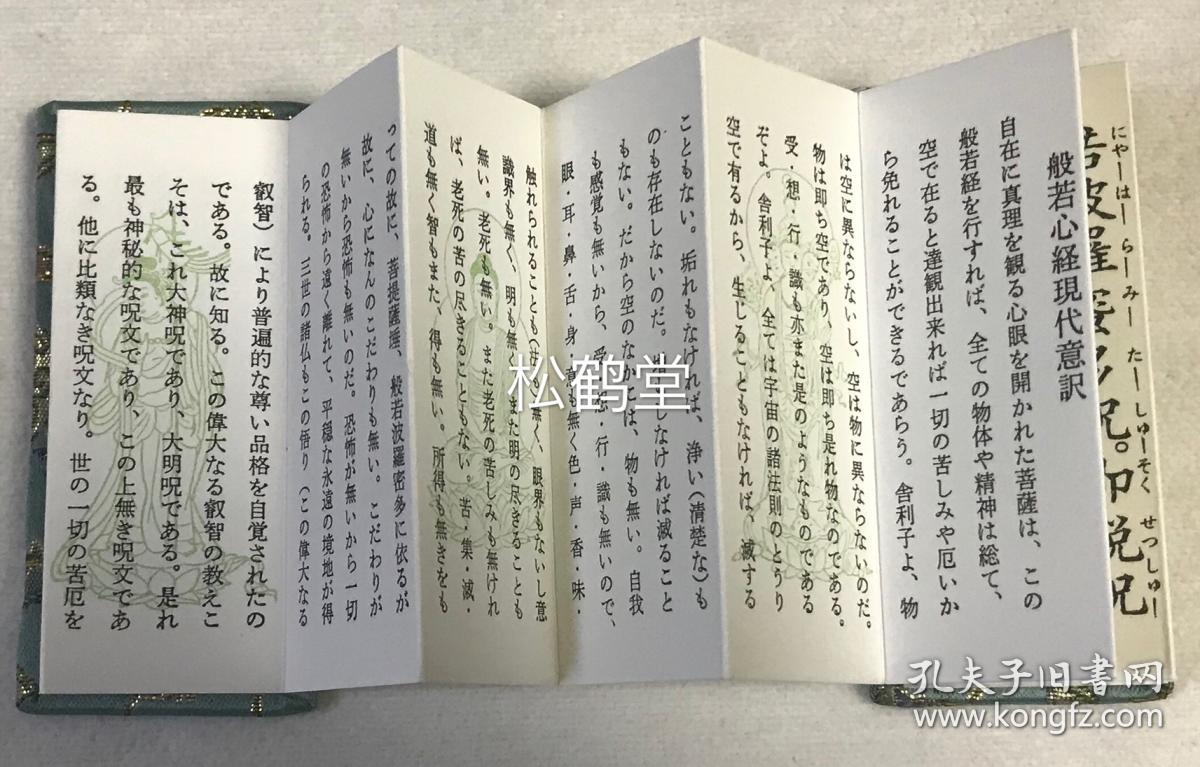 にゃーはーらーみーたーしゅーそくせつしゅー
若波羅蜜多呪。即説呪
般若心経現代意訳
自在に真理を観る心眼を開かれた菩薩は、この
般若経を行すれば、全ての物体や精神は総て、
空で在ると達観出来れば一切の苦しみや厄いか
ら免れることができるであらう。舎利子よ、物
は空に異ならないし、空は物に異ならないのだ。
物は即ち空であり、空は即ち是れ物なのである。
受・想・行・識も亦また是のようなものである
ぞよ。舎利子よ、全ては宇宙の諸法則のとうり
空で有るから、生じることもなければ、滅する
こともない。垢れもなければ、浄い(清楚な)も
のも存在しないのだ。しなければ減ること
もない。だから空のなかには、物も無い。自我
も感覚も無いから、受・想・行・識も無いので、
眼・耳・鼻・舌・身・意も無く色・声・香・味・
触れられることも無く、眼界もないし意
識界も無く、明も無くまた明の尽きることも
無い。老死も無い。また老死の苦しみも無けれ
ば、老死の苦の尽きることもない。苦・集・滅・
道も無く智もまた、得も無い。所得も無きをも
っての故に、菩提薩埵、般若波羅密多に依るが
故に、心になんのこだわりも無い。こだわりが
無いから恐怖も無いのだ。恐怖が無いから一切
の恐怖から遠く離れて、平穏な永遠の境地が得
られる。三世の諸仏もこの悟り(この偉大なる
叡智)により普遍的な尊い品格を自覚されたの
である。故に知る。この偉大なる叡智の教えこ
そは、これ大神呪であり、大明呪である。是れ
最も神秘的な呪文であり、この上無き呪文であ
る。他に比類なき呪文なり。世の一切の苦厄を
松鹤堂
孔夫子旧书网
www.kongfz.com